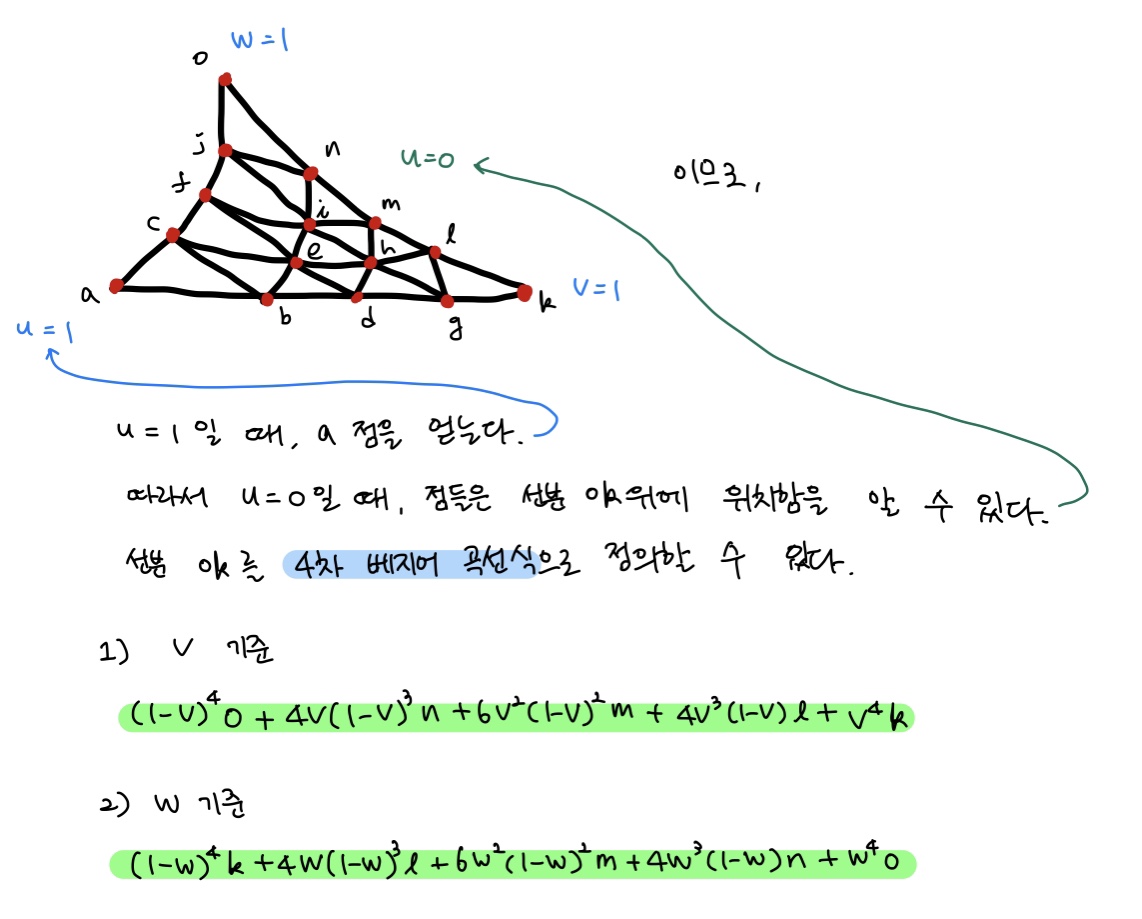 w=1
o
j
n
u=0
이므로,
f
i
m
c
e
h
l
a
k
v=1
b
d
g
u=1
u=1일 때, a 점을 얻는다.
따라서 u=0일 때, 점들은 선분 ok위에 위치함을 알 수 있다.
선분 ok를 4차 베지어 곡선식으로 정의할 수 있다.
1) v 기준
(1-v)⁴o + 4v(1-v)³n + 6v²(1-v)²m + 4v³(1-v)l + v⁴k
2) w 기준
(1-w)⁴k + 4w(1-w)³l + 6w²(1-w)²m + 4w³(1-w)n + w⁴o